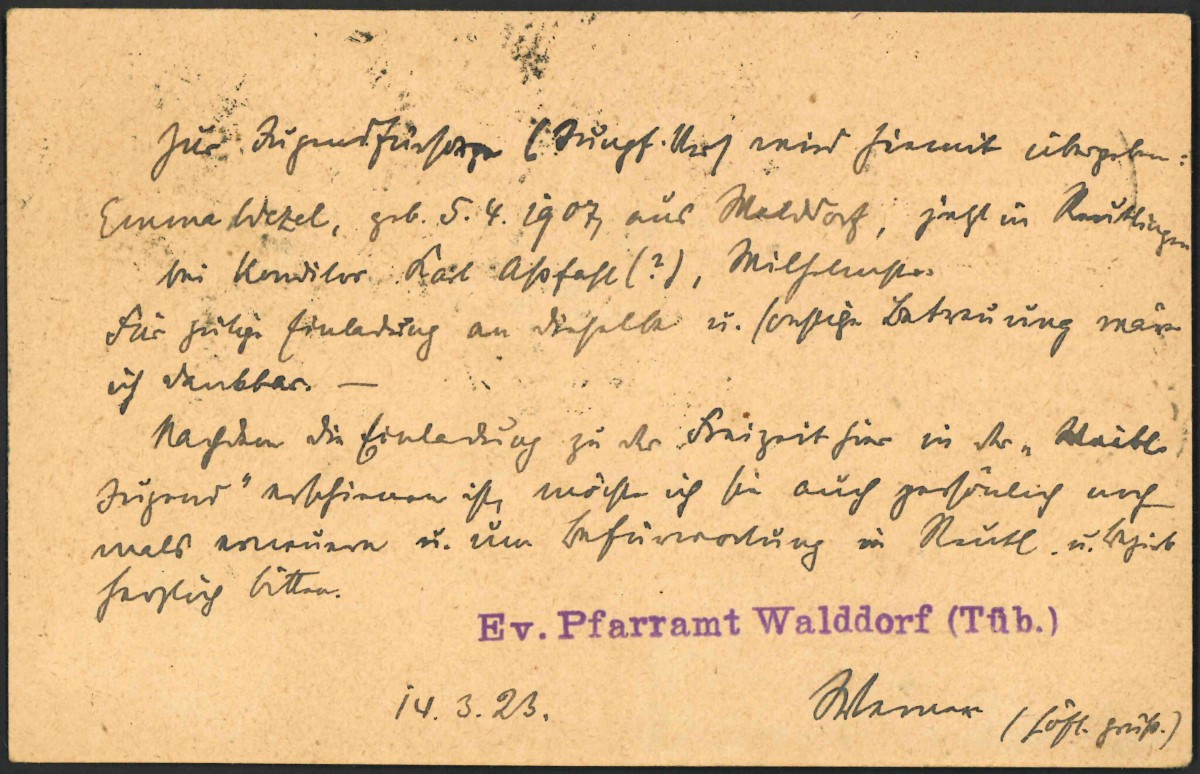 Zur Jugendfürsorge (Jungf. Ver) wird hiemit übergeben:
Emma Wezel, geb. 5. 4. 1907, aus Walddorf, jetzt in Reutlingen
bei Konditor Karl Aßfahl (?), Wilhelmstr.
Für gütige Einladung an dieselbe u. sonstige Betreuung wäre
ich dankbar. —
Nachdem die Einladung zu der Freizeit hier in der „Weibl.
Jugend" erschienen ist, möchte ich sie auch persönlich noch
mals erneuern u. um Befürwortung in Reutl. u. Bezirk
herzlich bitten.
Ev. Pfarramt Walddorf (Tüb.)
14. 3. 23.
Werner (höfl. grüß.)